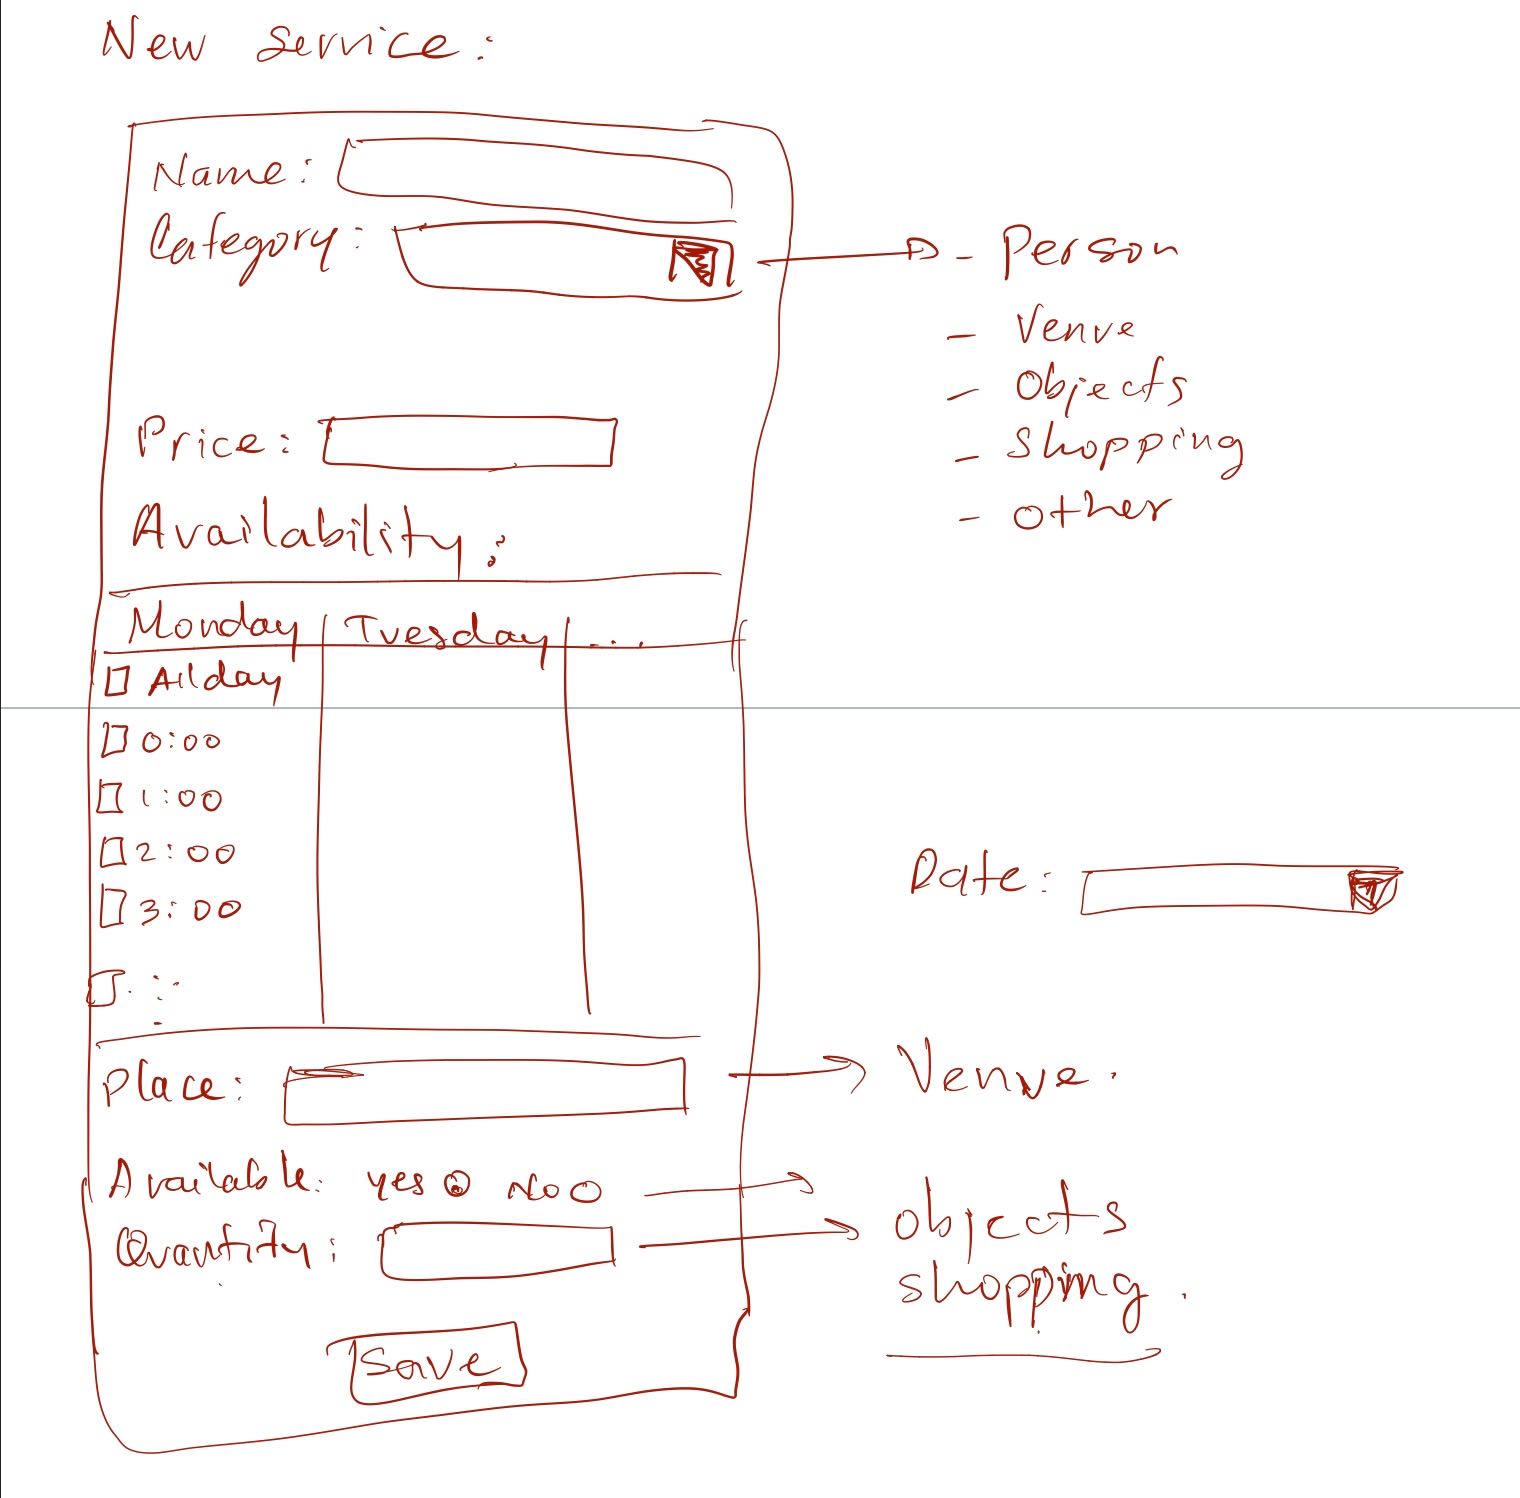 New service:
Name:
Category:
- Person
- Venue
- Objects
- Shopping
- other
Price:
Availability:
Monday Tuesday ...
All day
0:00
1:00
2:00
3:00
Date:
Place:
Venue.
Available: yes No
Quantity:
objects
shopping.
Save